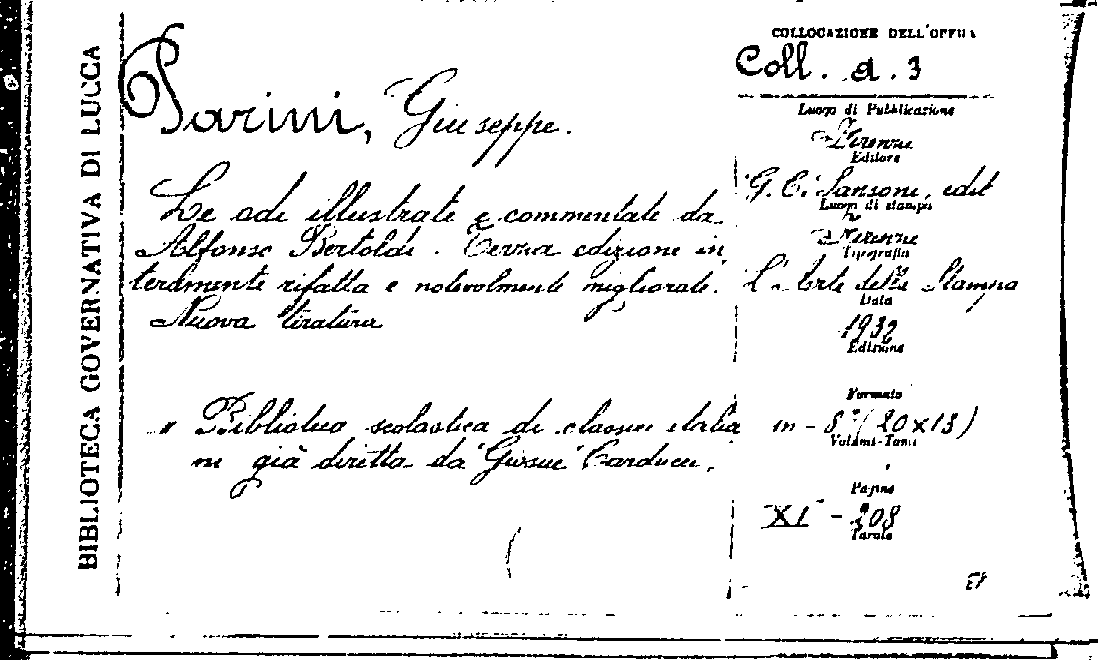 BIBLIOTECA GOVERNATIVA DI LUCCA
Parini, Giuseppe.
Le odi illustrate e commentate da
Alfonso Bertoldi. Terza edizione in
teramente rifatta e notevolmente migliorata.
Nuova tiratura
" Biblioteca scolastica di classici italia
ni già diretta da Giosuè Carducci.
COLLOCAZIONE DELL'OPERA
Coll. a. 3
Luogo di Pubblicazione
Firenze
Editore
G. C. Sansoni, edit
Luogo di stampa
Firenze
Tipografia
L'Arte della Stampa
Data
1932
Edizione
Formato
in - 8° (20x13)
Volumi-Tomi
Pagine
XI - 208
Tavole